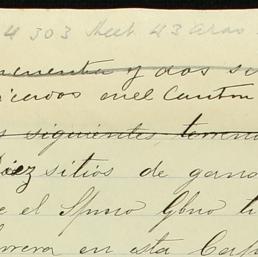 4 303 Hect 43 aras
y dos si
enel Canton
s siguientes terren
Diez sitios de gana
e el Spmo Gbno ti
en esta Cap